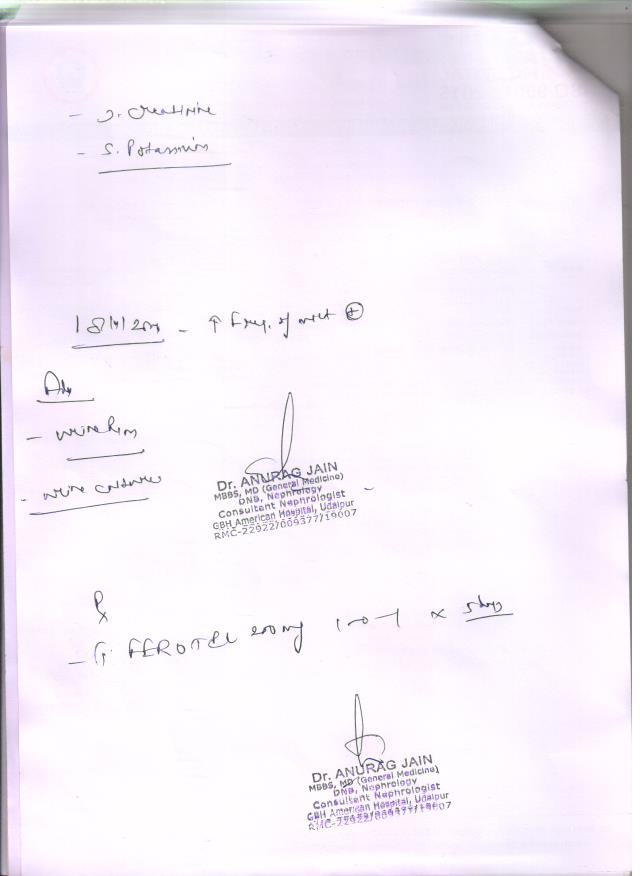 - S. Creatinine
- S. Potassium
- ↑ freq. of mict ⊕
Adv
- urine R/m
- urine culture
Dr. ANURAG JAIN
MBBS, MD (General Medicine)
DNB, Nephrology
Consultant Nephrologist
GBH American Hospital, Udaipur
RMC-22922/009377/19607
℞
200 mg 1-0-1 x 5 days
Dr. ANURAG JAIN
MBBS, MD (General Medicine)
DNB, Nephrology
Consultant Nephrologist
GBH American Hospital, Udaipur
RMC-22922/009377/19607